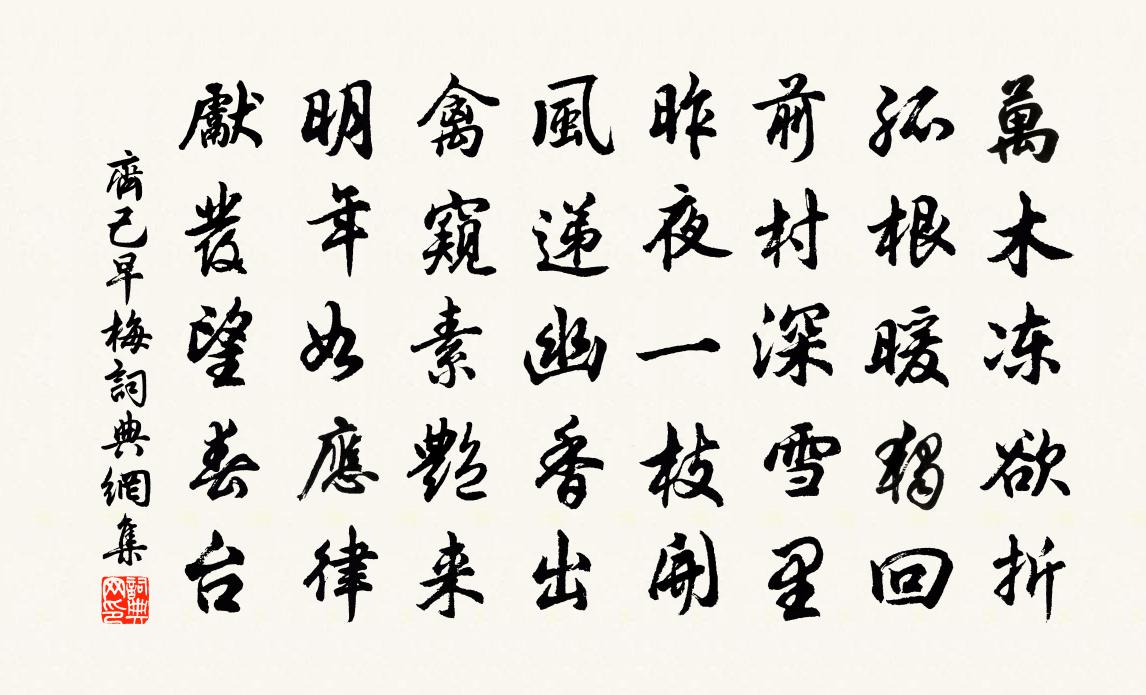 萬木冻欲折
孤根暖獨回
前村深雪里
昨夜一枝開
風递幽香出
禽窺素艷来
明年如應律
獻發望春台
齊己早梅詞典網集
詞典网印